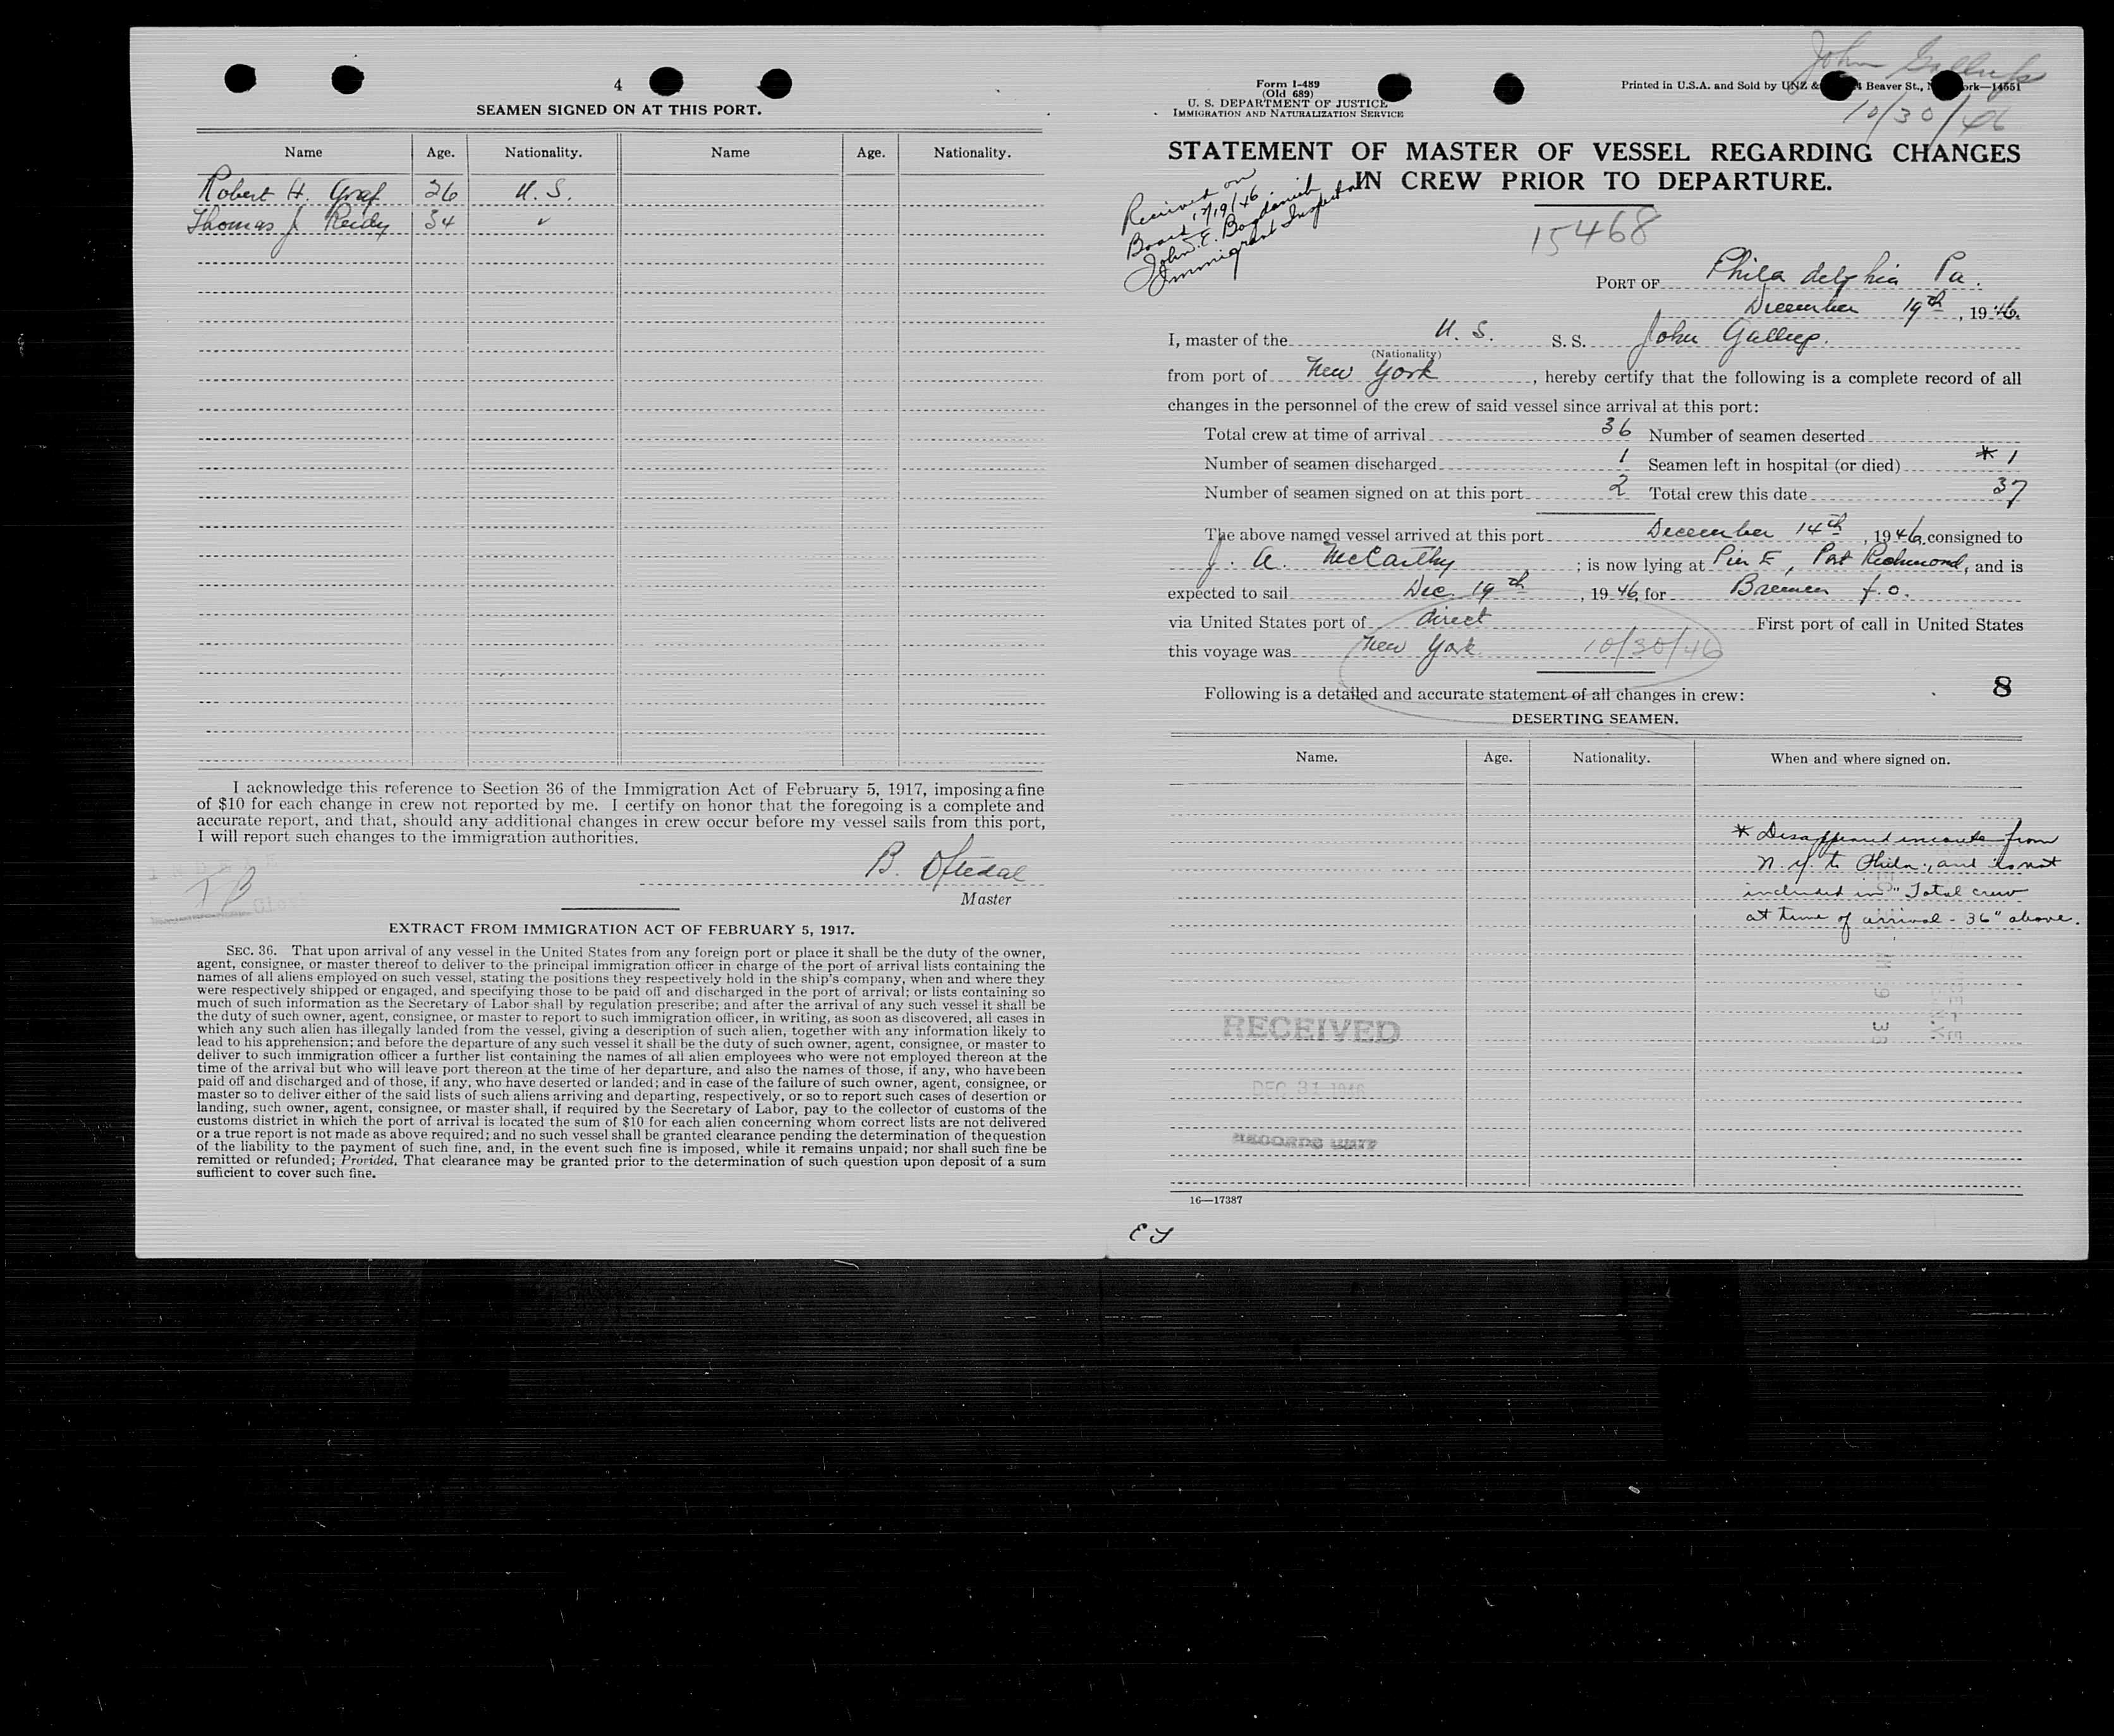 4
SEAMEN SIGNED ON AT THIS PORT.
Name Age. Nationality. Name Age. Nationality.
Robert H. Graf 26 U.S.
Thomas J Reidy 34 ✓
I acknowledge this reference to Section 36 of the Immigration Act of February 5, 1917, imposing a fine
of $10 for each change in crew not reported by me. I certify on honor that the foregoing is a complete and
accurate report, and that, should any additional changes in crew occur before my vessel sails from this port,
I will report such changes to the immigration authorities.
B. Oftedal
Master
EXTRACT FROM IMMIGRATION ACT OF FEBRUARY 5, 1917.
SEC. 36. That upon arrival of any vessel in the United States from any foreign port or place it shall be the duty of the owner,
agent, consignee, or master thereof to deliver to the principal immigration officer in charge of the port of arrival lists containing the
names of all aliens employed on such vessel, stating the positions they respectively hold in the ship's company, when and where they
were respectively shipped or engaged, and specifying those to be paid off and discharged in the port of arrival; or lists containing so
much of such information as the Secretary of Labor shall by regulation prescribe; and after the arrival of any such vessel it shall be
the duty of such owner, agent, consignee, or master to report to such immigration officer, in writing, as soon as discovered, all cases in
which any such alien has illegally landed from the vessel, giving a description of such alien, together with any information likely to
lead to his apprehension; and before the departure of any such vessel it shall be the duty of such owner, agent, consignee, or master to
deliver to such immigration officer a further list containing the names of all alien employees who were not employed thereon at the
time of the arrival but who will leave port thereon at the time of her departure, and also the names of those, if any, who have been
paid off and discharged and of those, if any, who have deserted or landed; and in case of the failure of such owner, agent, consignee, or
master so to deliver either of the said lists of such aliens arriving and departing, respectively, or so to report such cases of desertion or
landing, such owner, agent, consignee, or master shall, if required by the Secretary of Labor, pay to the collector of customs of the
customs district in which the port of arrival is located the sum of $10 for each alien concerning whom correct lists are not delivered
or a true report is not made as above required; and no such vessel shall be granted clearance pending the determination of the question
of the liability to the payment of such fine, and, in the event such fine is imposed, while it remains unpaid; nor shall such fine be
remitted or refunded; Provided, That clearance may be granted prior to the determination of such question upon deposit of a sum
sufficient to cover such fine.
John Gallup
10/30/46
Form I-489
(Old 689)
U. S. DEPARTMENT OF JUSTICE
IMMIGRATION AND NATURALIZATION SERVICE
Printed in U.S.A. and Sold by UNZ & Beaver St., 14551
STATEMENT OF MASTER OF VESSEL REGARDING CHANGES
IN CREW PRIOR TO DEPARTURE.
Received on
Board 12/19/46
John E. Bogdanich
Immigrant Inspector
15468
PORT OF Philadelphia Pa.
December 19th, 1946.
I, master of the U. S. S. S. John Gallup.
(Nationality)
from port of New York, hereby certify that the following is a complete record of all
changes in the personnel of the crew of said vessel since arrival at this port:
Total crew at time of arrival 36 Number of seamen deserted
Number of seamen discharged 1 Seamen left in hospital (or died) * 1
Number of seamen signed on at this port 2 Total crew this date 37
The above named vessel arrived at this port December 14th, 1946, consigned to
J. A. McCarthy; is now lying at Pier E, Port Richmond, and is
expected to sail Dec. 19th, 1946, for Bremen f.o.
via United States port of direct First port of call in United States
this voyage was New York 10/30/46
Following is a detailed and accurate statement of all changes in crew:
8
DESERTING SEAMEN.
Name. Age. Nationality. When and where signed on.
* Disappeared enroute from
N.Y. to Phila., and is not
included in "Total crew
at time of arrival - 36" above.
RECEIVED
DEC 31 1946
RECORDS UNIT
16—17387